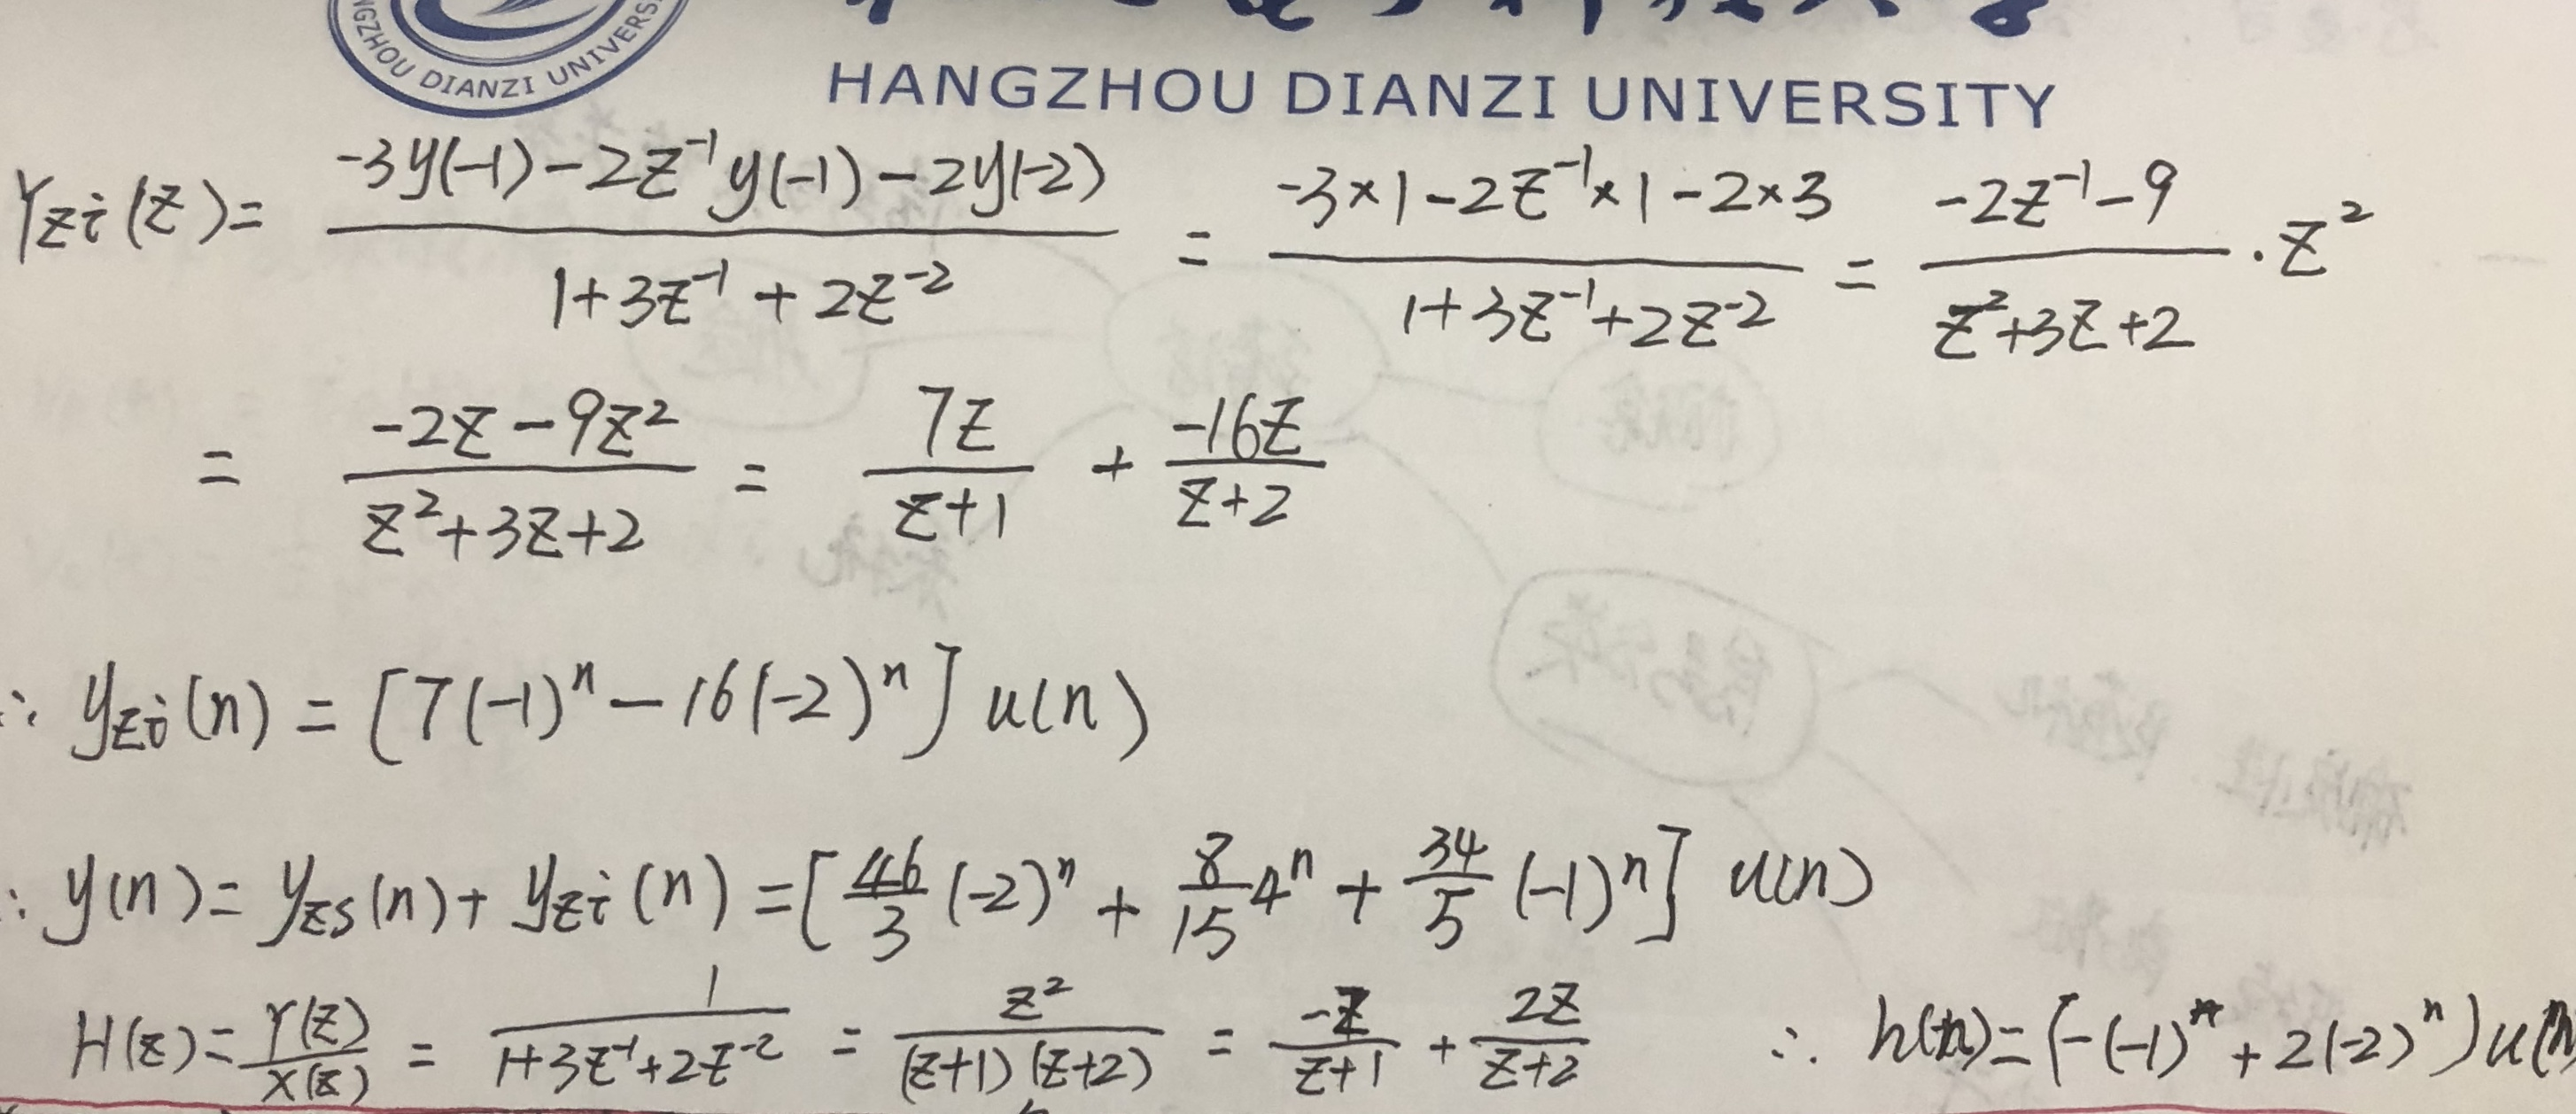 HANGZHOU DIANZI UNIVERSITY
NGZHOU DIANZI UNIVERSI
Yzi(z) = (-3y(-1) - 2z⁻¹y(-1) - 2y(-2)) / (1+3z⁻¹+2z⁻²) = (-3×1-2z⁻¹×1-2×3) / (1+3z⁻¹+2z⁻²) = (-2z⁻¹-9) / (z²+3z+2) · z²
= (-2z-9z²) / (z²+3z+2) = 7z / (z+1) + -16z / (z+2)
∴ yzi(n) = [7(-1)ⁿ - 16(-2)ⁿ] u(n)
∴ y(n) = yzs(n) + yzi(n) = [46/3 (-2)ⁿ + 8/15 4ⁿ + 34/5 (-1)ⁿ] u(n)
H(z) = Y(z)/X(z) = 1 / (1+3z⁻¹+2z⁻²) = z² / ((z+1)(z+2)) = -z / (z+1) + 2z / (z+2) ∴ h(n) = (-(-1)ⁿ + 2(-2)ⁿ) u(n